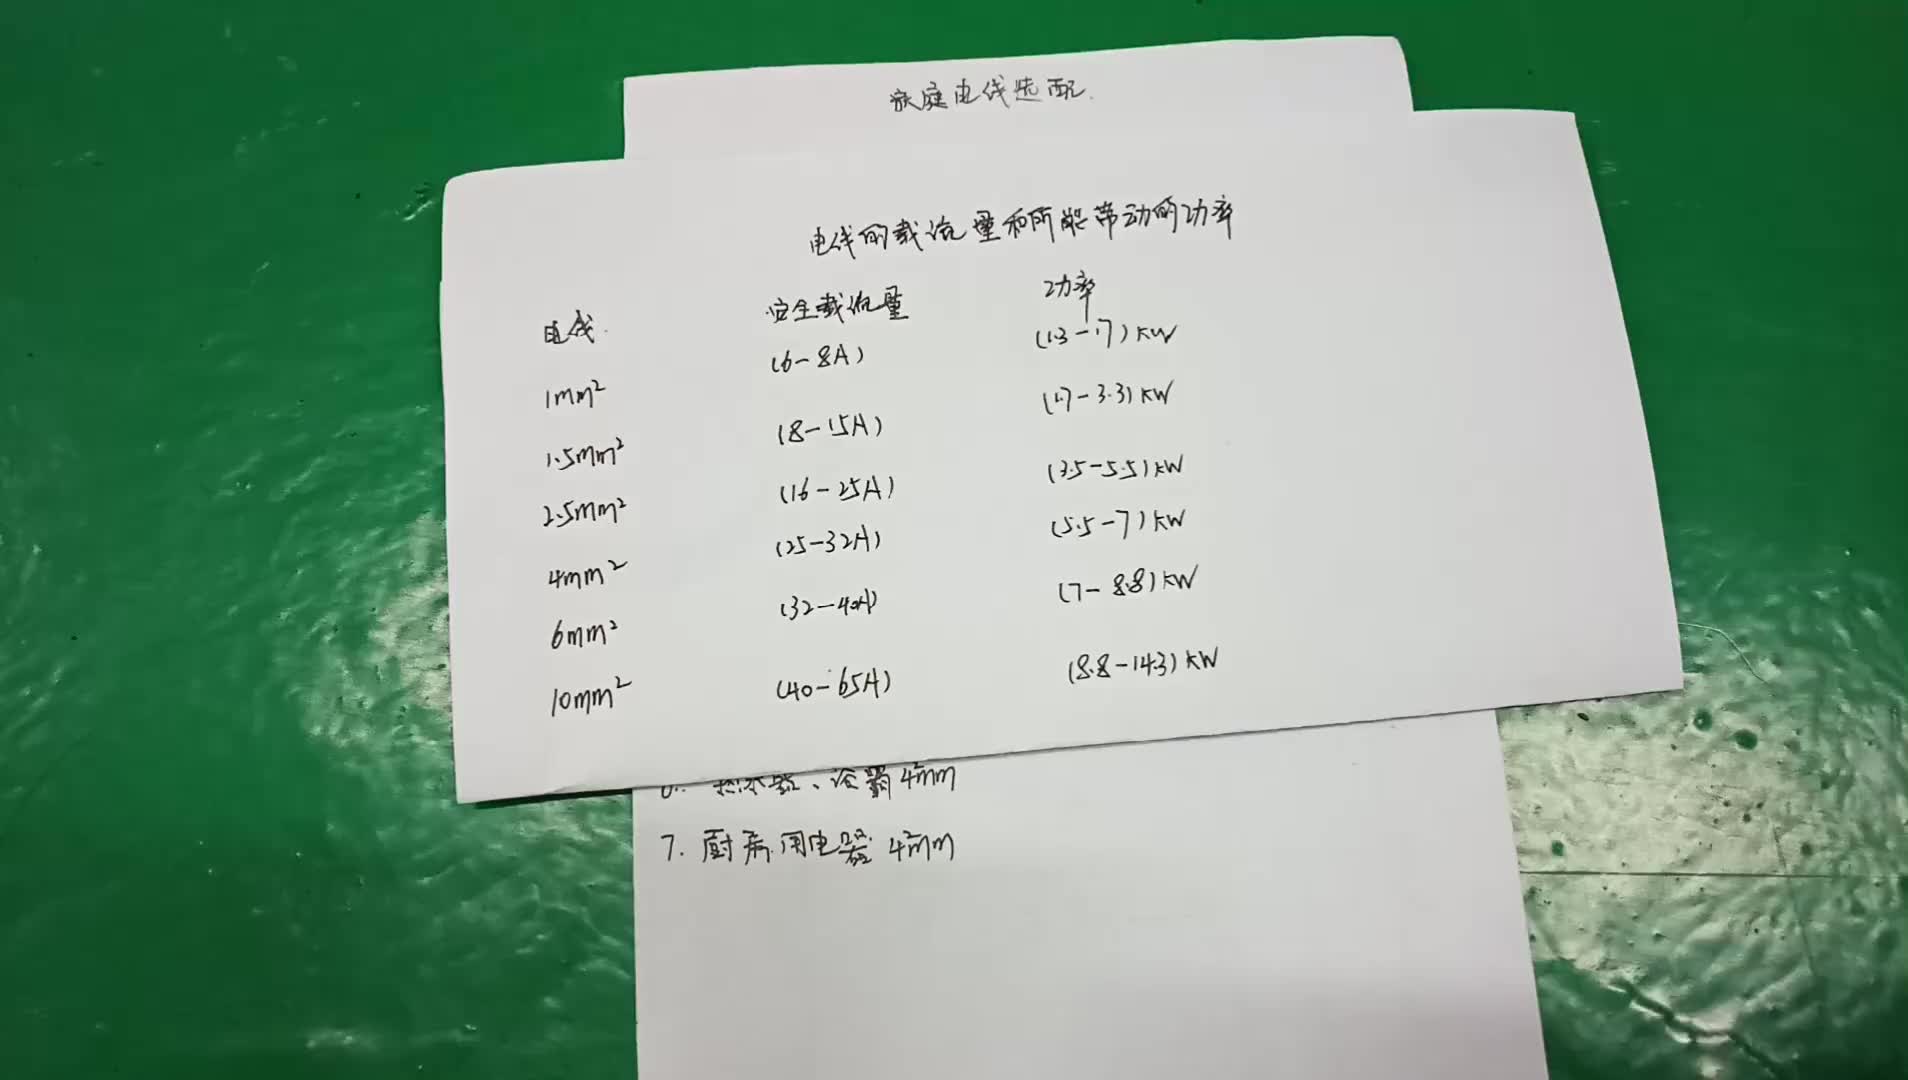 家庭电线选配.
电线的载流量和所能带动的功率
电线. 安全载流量 功率
1mm² (6-8A) (1.3-1.7)KW
1.5mm² (8-15A) (1.7-3.3)KW
2.5mm² (16-25A) (3.5-5.5)KW
4mm² (25-32A) (5.5-7)KW
6mm² (32-40A) (7-8.8)KW
10mm² (40-65A) (8.8-14.3)KW
热水器、浴霸 4²mm
7. 厨房用电器 4²mm